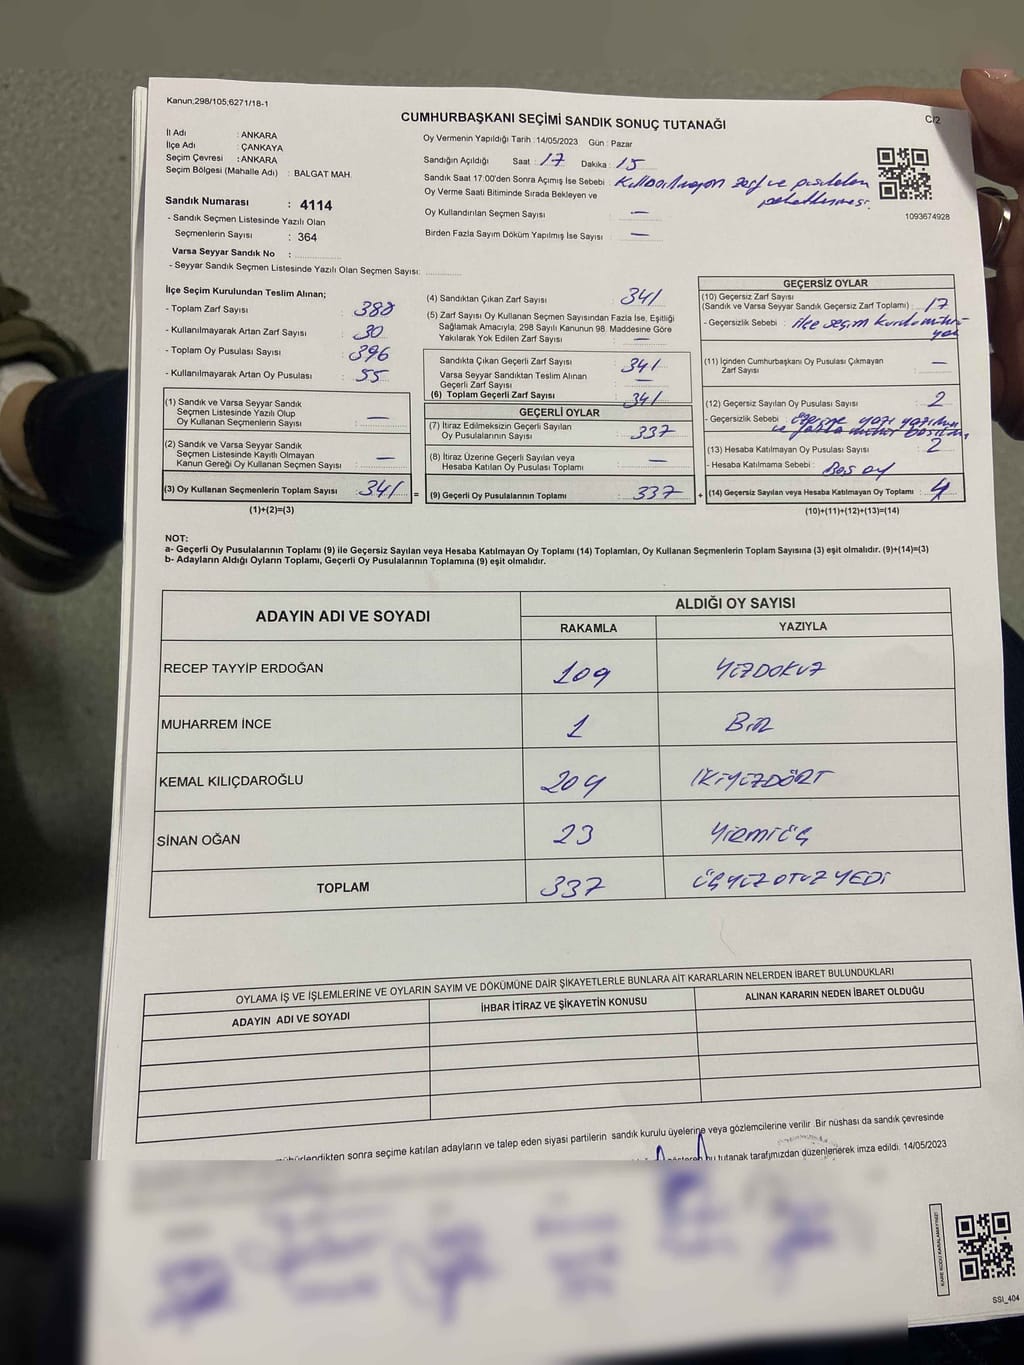 Kanun;298/105;6271/18-1
CUMHURBAŞKANI SEÇİMİ SANDIK SONUÇ TUTANAĞI
C/2
İl Adı : ANKARA
İlçe Adı : ÇANKAYA
Seçim Çevresi : ANKARA
Seçim Bölgesi (Mahalle Adı) : BALGAT MAH.
Oy Vermenin Yapıldığı Tarih : 14/05/2023 Gün : Pazar
Sandığın Açıldığı Saat : 17 Dakika : 15
Sandık Saat 17.00'den Sonra Açımış İse Sebebi : zarf ve
Oy Verme Saati Bitiminde Sırada Bekleyen ve
Oy Kullandırılan Seçmen Sayısı : —
Birden Fazla Sayım Döküm Yapılmış İse Sayısı : —
1093674928
Sandık Numarası : 4114
- Sandık Seçmen Listesinde Yazılı Olan
Seçmenlerin Sayısı : 364
Varsa Seyyar Sandık No :
- Seyyar Sandık Seçmen Listesinde Yazılı Olan Seçmen Sayısı:
İlçe Seçim Kurulundan Teslim Alınan;
- Toplam Zarf Sayısı : 388
- Kullanılmayarak Artan Zarf Sayısı : 30
- Toplam Oy Pusulası Sayısı : 396
- Kullanılmayarak Artan Oy Pusulası : 55
(1) Sandık ve Varsa Seyyar Sandık
Seçmen Listesinde Yazılı Olup
Oy Kullanan Seçmenlerin Sayısı : —
(2) Sandık ve Varsa Seyyar Sandık
Seçmen Listesinde Kayıtlı Olmayan
Kanun Gereği Oy Kullanan Seçmen Sayısı : —
(3) Oy Kullanan Seçmenlerin Toplam Sayısı : 341 =
(1)+(2)=(3)
(4) Sandıktan Çıkan Zarf Sayısı : 341
(5) Zarf Sayısı Oy Kullanan Seçmen Sayısından Fazla İse, Eşitliği
Sağlamak Amacıyla, 298 Sayılı Kanunun 98. Maddesine Göre
Yakılarak Yok Edilen Zarf Sayısı : —
Sandıkta Çıkan Geçerli Zarf Sayısı : 341
Varsa Seyyar Sandıktan Teslim Alınan
Geçerli Zarf Sayısı : —
(6) Toplam Geçerli Zarf Sayısı : 341
GEÇERLİ OYLAR
(7) İtiraz Edilmeksizin Geçerli Sayılan
Oy Pusulalarının Sayısı : 337
(8) İtiraz Üzerine Geçerli Sayılan veya
Hesaba Katılan Oy Pusulası Toplamı : —
(9) Geçerli Oy Pusulalarının Toplamı : 337 +
GEÇERSİZ OYLAR
(10) Geçersiz Zarf Sayısı
(Sandık ve Varsa Seyyar Sandık Geçersiz Zarf Toplamı) : 17
- Geçersizlik Sebebi : ilçe seçim kurulu mührü
yok
(11) İçinden Cumhurbaşkanı Oy Pusulası Çıkmayan
Zarf Sayısı : —
(12) Geçersiz Sayılan Oy Pusulası Sayısı : 2
- Geçersizlik Sebebi : üzerine yazı yazılması
ve fazla mühür basılmış
(13) Hesaba Katılmayan Oy Pusulası Sayısı : 2
- Hesaba Katılmama Sebebi : Boş oy
(14) Geçersiz Sayılan veya Hesaba Katılmayan Oy Toplamı : 4
(10)+(11)+(12)+(13)=(14)
NOT:
a- Geçerli Oy Pusulalarının Toplamı (9) ile Geçersiz Sayılan veya Hesaba Katılmayan Oy Toplamı (14) Toplamları, Oy Kullanan Seçmenlerin Toplam Sayısına (3) eşit olmalıdır. (9)+(14)=(3)
b- Adayların Aldığı Oyların Toplamı, Geçerli Oy Pusulalarının Toplamına (9) eşit olmalıdır.
ADAYIN ADI VE SOYADI
ALDIĞI OY SAYISI
RAKAMLA YAZIYLA
RECEP TAYYİP ERDOĞAN 109 YÜZDOKUZ
MUHARREM İNCE 1 BİR
KEMAL KILIÇDAROĞLU 204 İKİYÜZDÖRT
SİNAN OĞAN 23 YİRMİÜÇ
TOPLAM 337 ÜÇYÜZ OTUZ YEDİ
OYLAMA İŞ VE İŞLEMLERİNE VE OYLARIN SAYIM VE DÖKÜMÜNE DAİR ŞİKAYETLERLE BUNLARA AİT KARARLARIN NELERDEN İBARET BULUNDUKLARI
ADAYIN ADI VE SOYADI İHBAR İTİRAZ VE ŞİKAYETİN KONUSU ALINAN KARARIN NEDEN İBARET OLDUĞU
mühürlendikten sonra seçime katılan adayların ve talep eden siyasi partilerin sandık kurulu üyelerine veya gözlemcilerine verilir. Bir nüshası da sandık çevresinde
bu tutanak tarafımızdan düzenlenerek imza edildi. 14/05/2023
KARE KODU KARALAMAYINIZ!
SSI_404